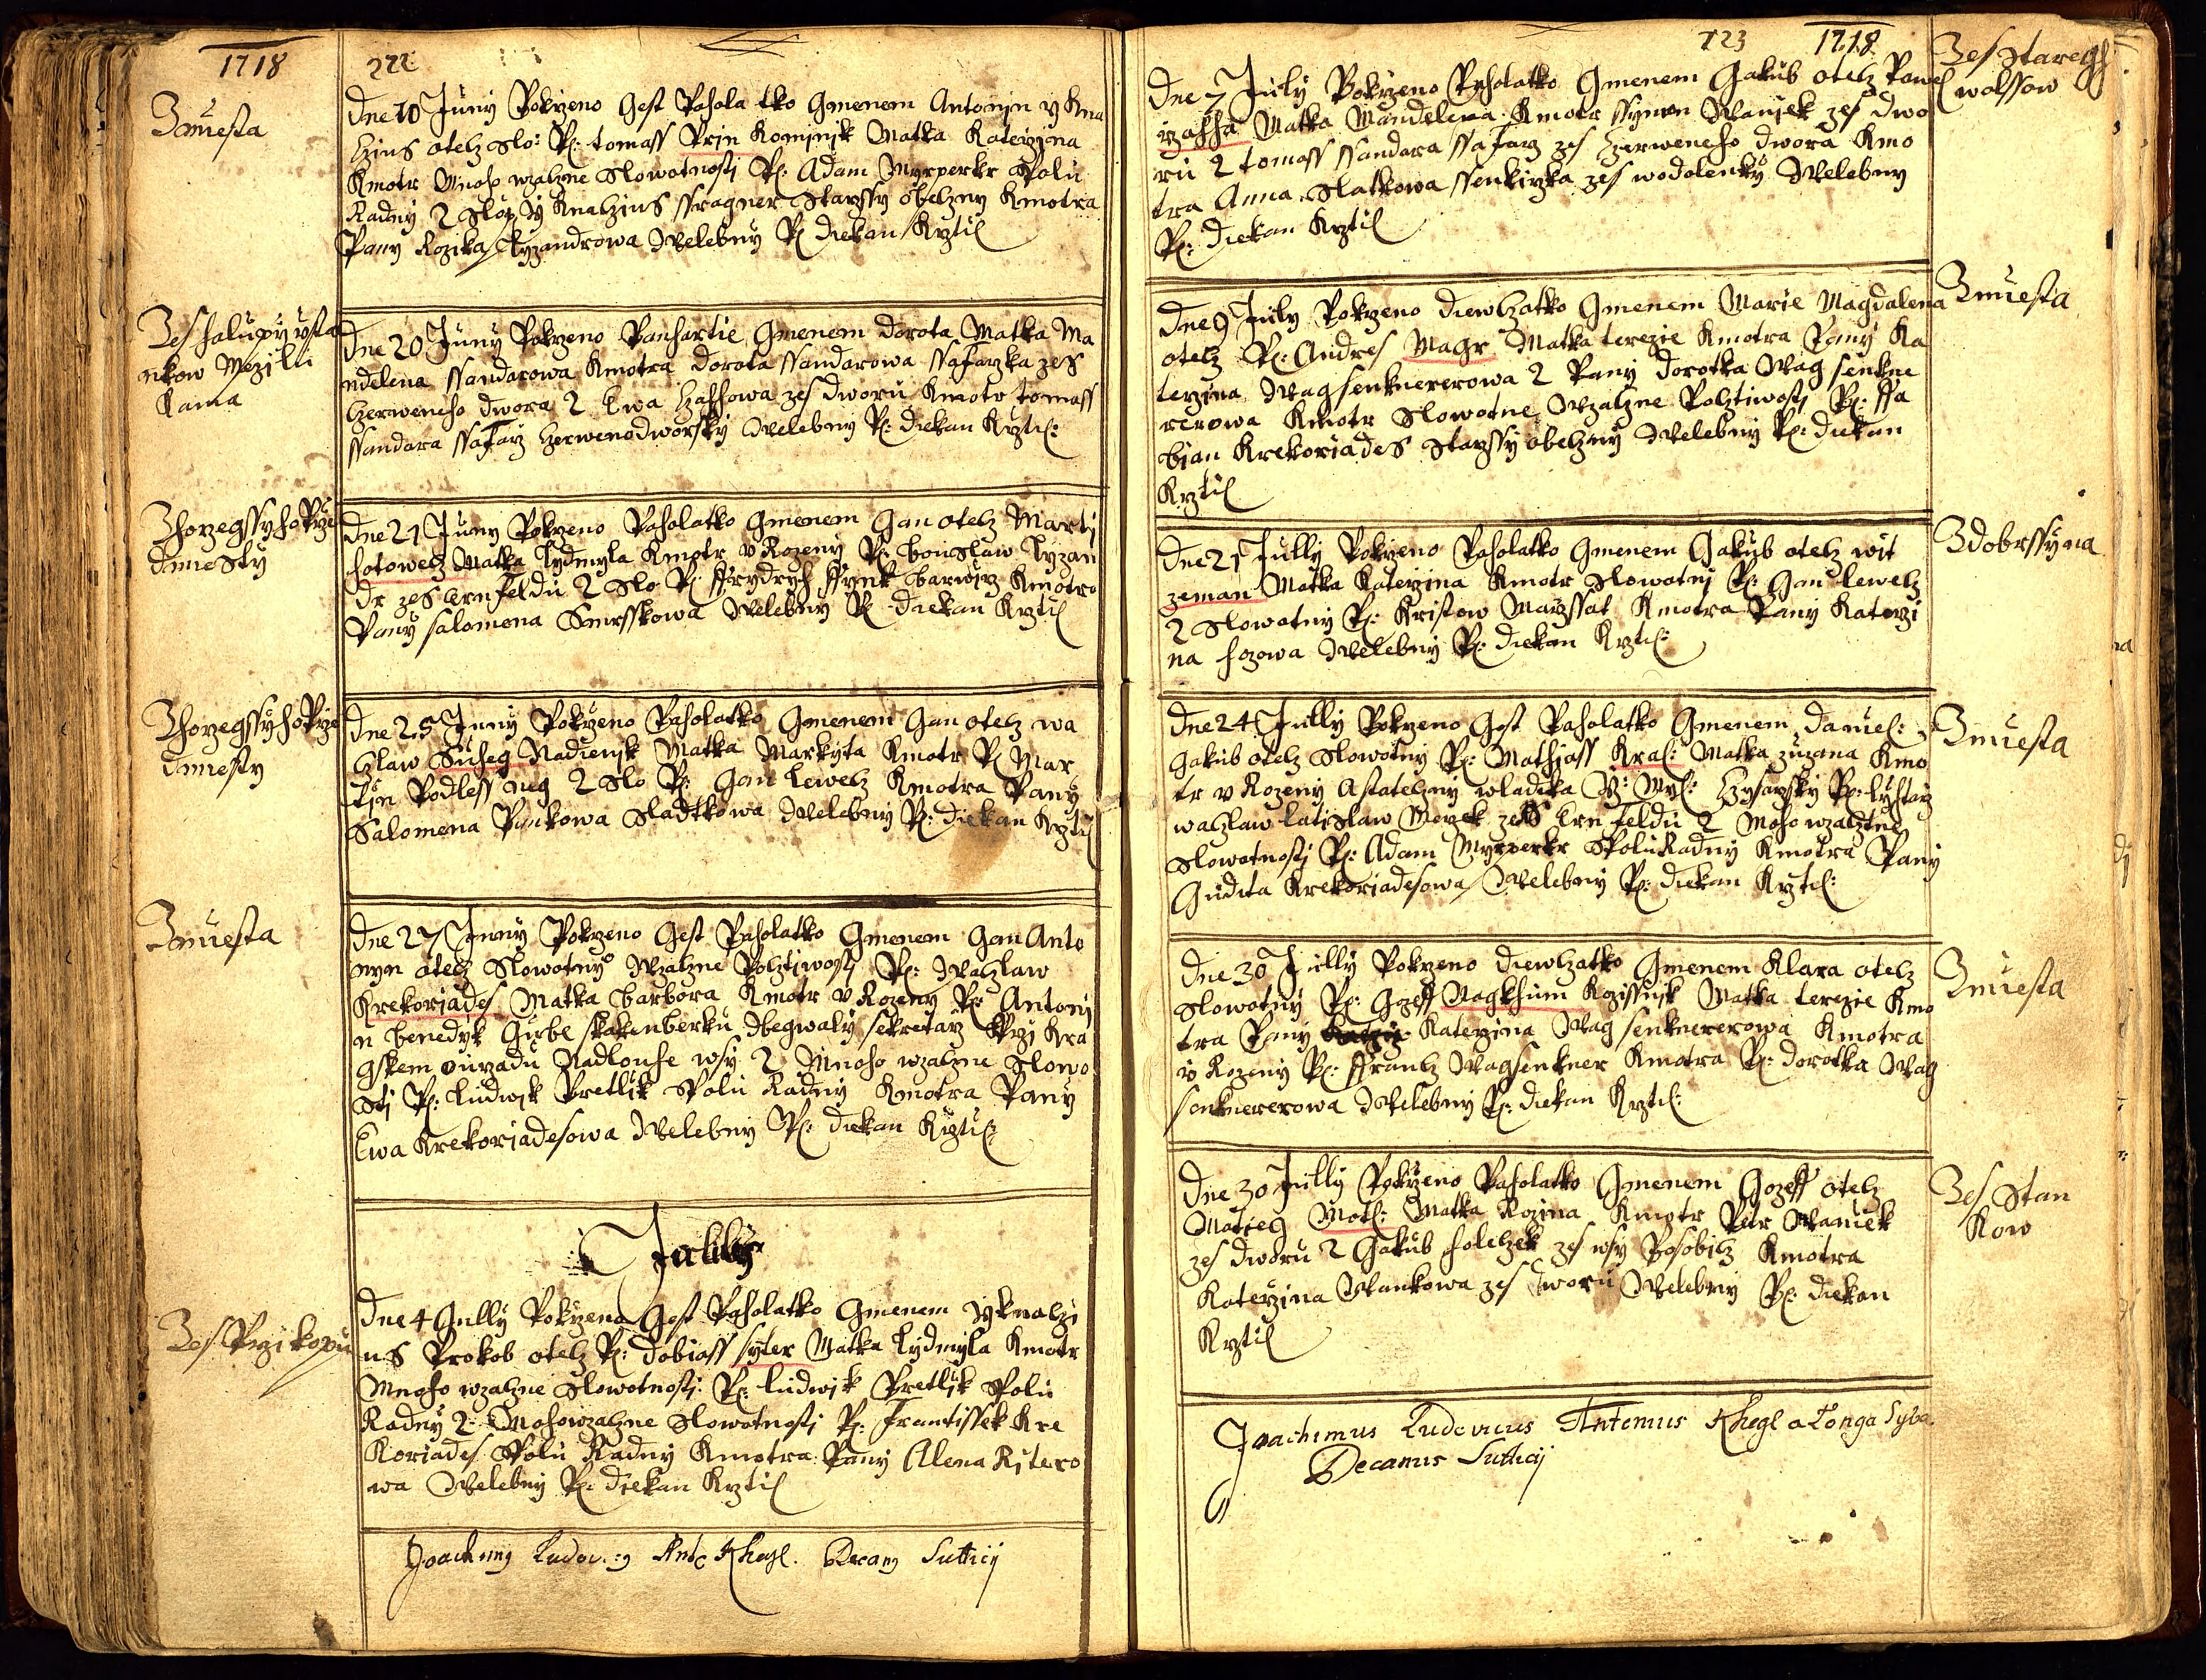 1718
222
Zmiesta
Dne 10 Juny Pokrzeno Gest Pahola tko Gmenem Antonyn y Kna
tzius otetz Slo: P: tomass Prin Kominjk Matka Katerzina
Kmotr Mnoho wzatzne Slowotnosti P: Adam Myrperkr Spolu
Radny 2 Slo: P: Jy Knatzius ffragner Starssy obetzny Kmotra
Pany Rozika Lyzandrowa Welebny P: diekan Krztil
Zes halupy v sta
nkow Mezi lu
kama
Dne 20 Juny Pokrzeno Panhartie Gmenem dorota Matka Ma
ndelena ssandarowa Kmotra dorota ssandarowa ssafarzka zes
tzerweneho dwora 2 Ewa hassowa zes dworu Kmotr tomass
ssandara ssafarz tzerwenodworsky Welebny P: diekan Krztil:
Zhorzegssyho Prze
dmiesty
Dne 21 Juny Pokrzeno Paholatko Gmenem Gan otetz Marti
hotowetz Matka Lydmyla Kmotr v Rozeny P: bouslaw Lyzan
dr zes Ernfeldu 2 Slo P: ffrydrych ffynk barwirz Kmotra
Pany salomena Smrsskowa Welebny P: diekan Krztil
Zhorzegssyho Prze
dmiesty
Dne 25 Juny Pokrzeno Paholatko Gmenem Gan otetz wa
tzlaw Suheg Nadienik Matka Markyta Kmotr P: Mar
tin Podless nig 2 Slo P: Gan Lewetz Kmotra Pany
Salomena Pankowa Sladtkowa Welebny P: diekan Krztil
Zmiesta
Dne 27 Juny Pokrzeno Gest Paholatko Gmenem Gan Anto
nyn otetz Slowotny Wzatzne Potztiwosti P: Watzlaw
Krekoriades Matka barbora Kmotr v Rozeny P: Antoni
n benedyk Girbl skakenberku Begwaly sekretarz Przi Kra
gskem ourzadu Nadlouhe wsy 2 Mnoho wzatzne Slowo
Sti P: Ludwik Pretlik Spolu Radny Kmotra Pany
Ewa Krekoriadesowa Welebny P: diekan Krztil:
Jullii
Zes Przikopu
Dne 4 Jully Pokrzeno Gest Paholatko Gmenem Jyknatzi
us Prokob otetz P: dobiass syter Matka Lydmyla Kmotr
Mnoho wzatzne Slowotnosti: P: Ludwik Pretlik Spolu
Radny 2 Mohowzatzne Slowotnosti P: Frantissek Kre
Koriades Spolu Radny Kmotra Pany Alena Ritero
wa Welebny P: diekan Krztil
Joachimus Ludovicus Ant: Khegl. Decanus Sutticij
723
1718
Zes Staregch
wolssow
Dne 7 July Pokrzeno Paholatko Gmenem Gakub otetz Pawel
Matka Mandelena Kmotr ssymon Waniek zes dwo
ru 2 tomass ssandara ssafarz zes tzerweneho dwora Kmo
tra Anna Slatkowa ssenkirzka zes wodolenky Welebny
P: diekan Krztil
Zmiesta
Dne 9 July Pokrzeno diewtzatko Gmenem Marie Magdalena
otetz P: Andres Magr Matka terezie Kmotra Pany Ka
terzina Wagsenknererowa 2 Pany dorotka Wag senkne
rerowa Kmotr Slowotne Wzatzne Potztiwosti P: ffa
bian Krekoriades Starssy obetzny Welebny P: diekan
Krztil
Zdobrssyna
Dne 21 Jully Pokrzeno Paholatko Gmenem Gakub otetz wit
zeman Matka Katerzina Kmotr Slowotny P: Gan Lewetz
2 Slowotny P: Kristow Marssat Kmotra Pany Katerzi
na hozowa Welebny P: diekan Krztil:
Zmiesta
Dne 24 Jully Pokrzeno Gest Paholatko Gmenem daniel:
Gakub otetz Slowotny P: Mathiass Kral: Matka zuzana Kmo
tr v Rozeny Astatetzny wladika G: Myl: Tzysarzsky P: Ryhtarz
watzlaw latislaw Merek zes Ernfeldu 2 Moho wzatzne
Slowotnosti P: Adam Myrperkr SpoluRadny Kmotra Pany
Gudita Krekoriadesowa Welebny P: diekan Krztil:
Zmiesta
Dne 30 Jully Pokrzeno diewtzatko Gmenem Klara otetz
Slowotny P: Gozeff Nagkhum Kozissnik Matka terezie Kmo
tra Pany Katerzina Wag senknererowa Kmotra
v Rozeny P: ffrantz Wagsenkner Kmotra P: dorotka Wag
senknererowa Welebny P: diekan Krztil:
Zes Stan
Kow
Dne 30 Jully Pokrzeno Paholatko Gmenem Gozeff otetz
Matieg Motl: Matka Rozina Kmotr Petr Waniek
zes dworu 2 Gakub holetzek zes wsy Posobitz Kmotra
Katerzina Wankowa zes dworu Welebny P: diekan
Krztil
Joachimus Ludovicus Antonius Khegl a Longa Sylva.
Decanus Sutticij